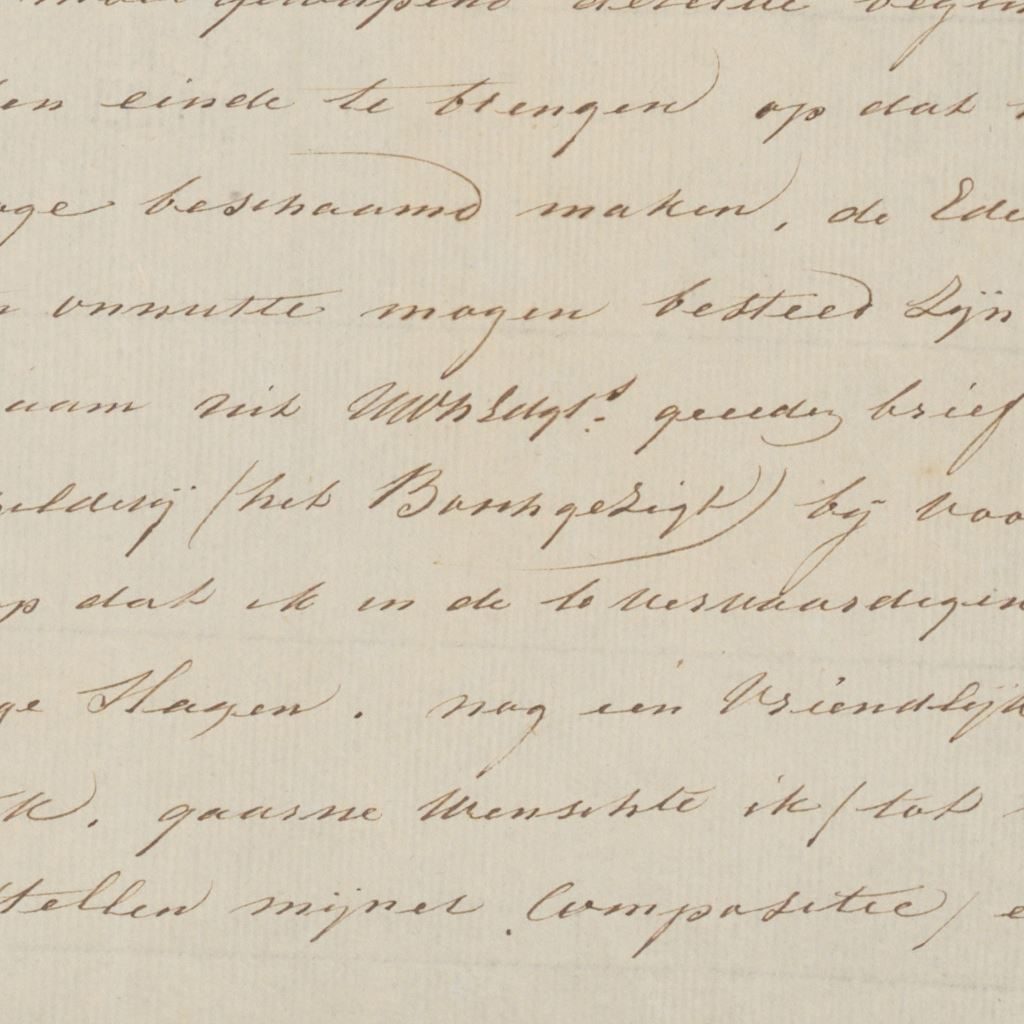 en einde te brengen op dat
oge beschaamd maken, de Ede
onnutte mogen besteed Zijn
aam uit UWhEdgt.s geeerden brief
ilderij (het Boschgezigt) bij voo
op dat ik in de te vervaardigen
ge Slagen. nog een Vriendlijk
k. gaarne Wenschte ik / tot
stellen mijner Compositie /